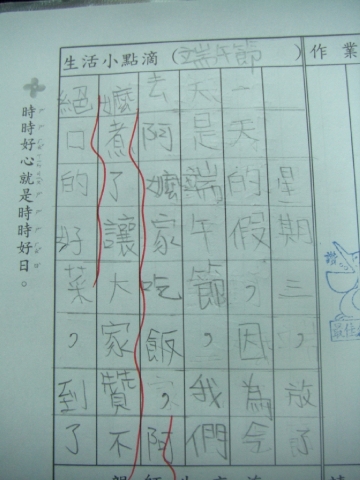 生活小點滴（端午節）
作業
星期三，放了
一天的假，因為今
天是端午節，我們
去阿嬤家吃飯，阿
嬤煮了讓大家贊不
絕口的好菜，到了
時時好心就是時時好日。